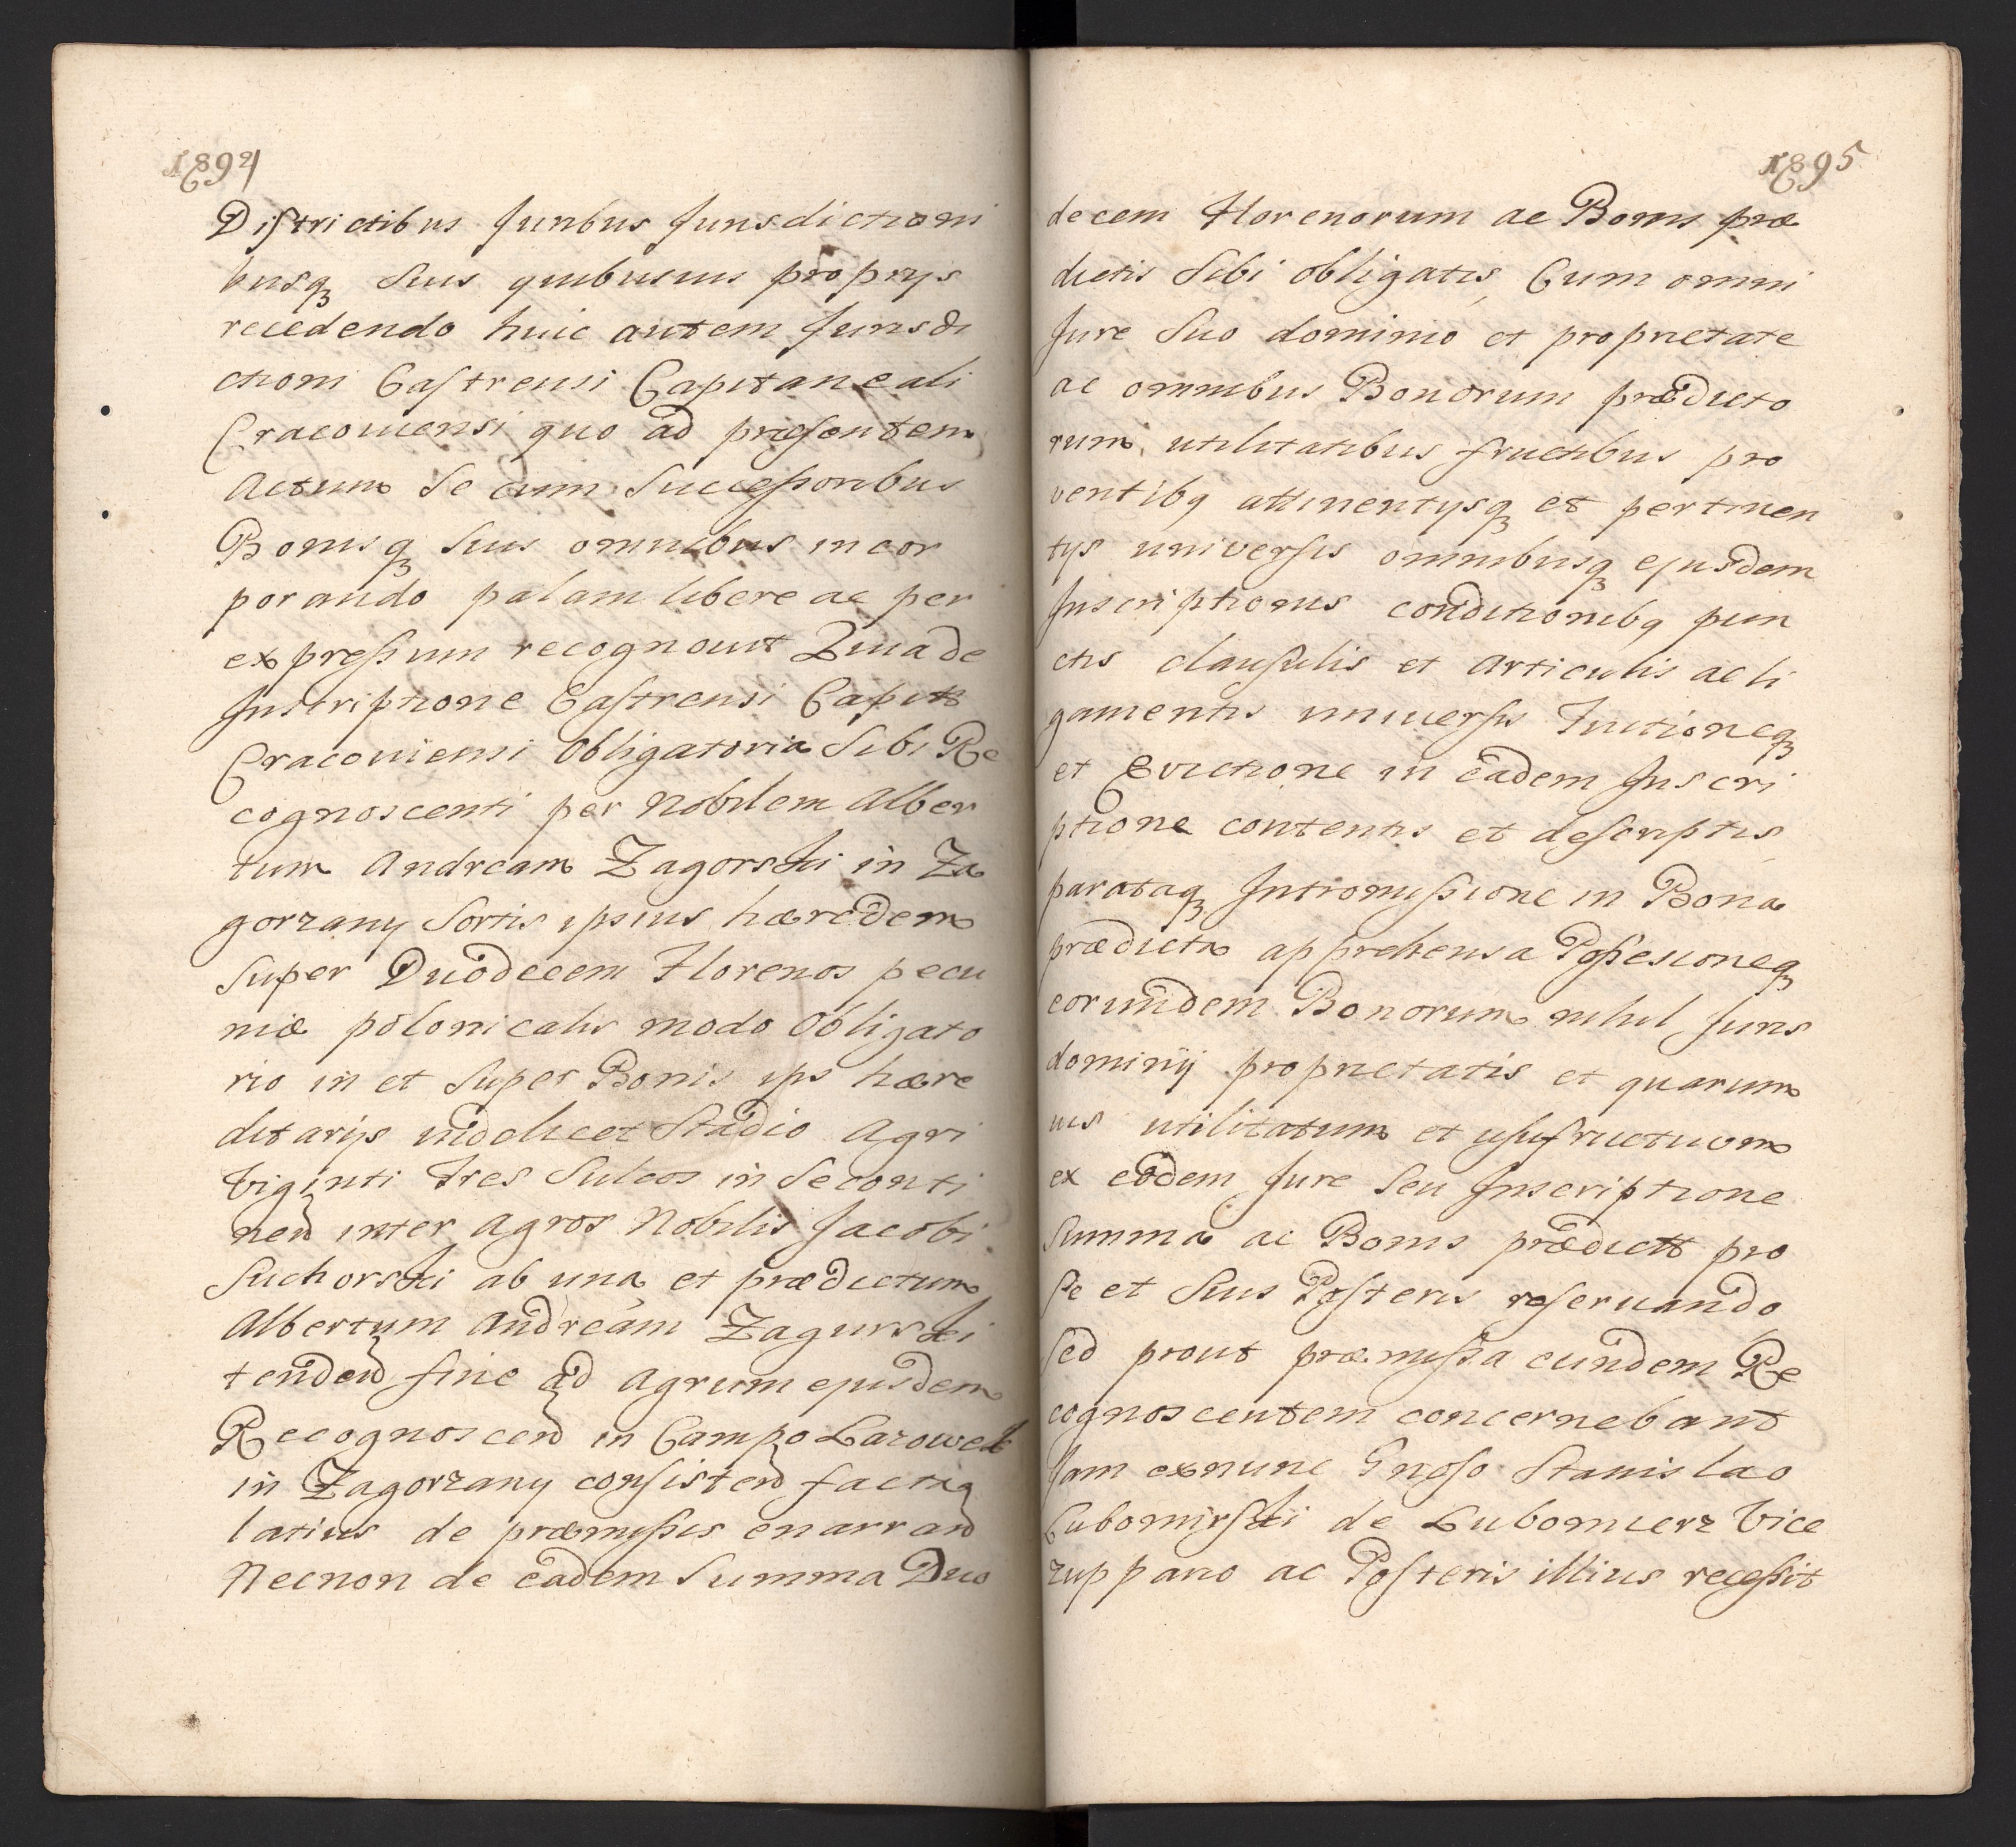 1894
Districtibus Juribus Jurisdictioni
busq suis quibusuis proprys
recedendo huic autem Jurisdi
ctioni Castrensi Capitaneali
Cracouiensi quo ad præsentem
Actum se cum Successoribus
Bonisq suis omnibus incor
porando palam libere ac per
expressum recognouit Quia de
Inscriptione Castrensi Capitt
Cracouiensi Obligatoria Sibi Re
cognoscenti per Nobilem Alber
tum Andream Zagorski in Za
gorzany Sortis ipsius hæredem
super Duodecem Florenos pecu
niæ polonicalis modo Obligato
rio in et super Bonis ips hære
ditarijs uidelicet Stadio Agri
Viginti Tres Sulcos in se conti
nen inter Agros Nobilis Jacobi
Suchorski ab una et prædictum
Albertum Andream Zagurski
tenden sine ad Agrum ejusdem
Recognoscen in Campo Lazowek
in Zagorzany consisten factaq
latius de præmissis enarran
Necnon de eadem Summa Duo
1895
decem Florenorum ac Bonis præ
dictis Sibi obligatis Cum omni
Jure Suo dominio et proprietate
ac omnibus Bonorum prædicto
rum utilitatibus fructibus pro
ventibq attinentysq et pertinen
tys universis omnibusq ejusdem
Inscriptionis conditionibq pun
ctis clausulis et Articulis ac li
gamentis uniuersis Tuitioneq
et Euictione in eadem Inscri
ptione contentis et descriptis
parataq Intromissione in Bona
prædicta apprehensa Possesioneq
eorundem Bonorum nihil Juris
dominij proprietatis et quarum
uis utilitatum et usufructuum
ex eodem Jure Seu Inscriptione
Summa ac Bonis prædictt pro
se et Suis Posteris reseruando
sed prout præmissa eundem Re
cognoscentem concernebant
Jam exnunc Gnoso Stanislao
Lubomirski de Lubomierz Vice
zuppano ac Posteris illius recessit